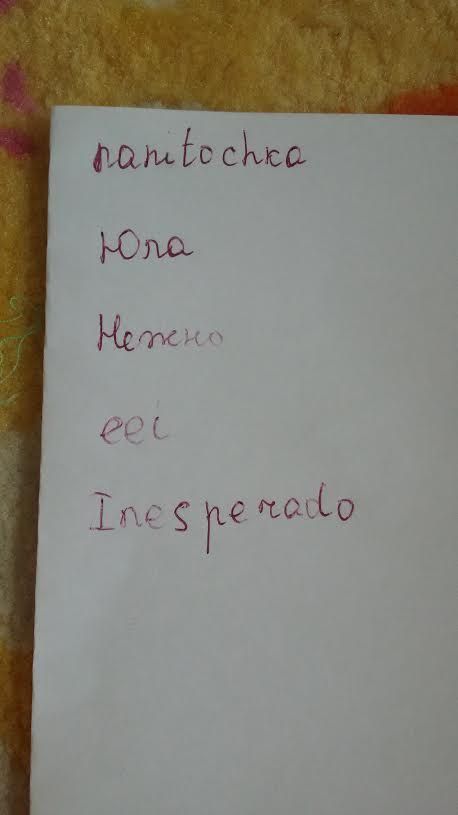 nanitochka
Юла
Нежно
eei
Inesperado